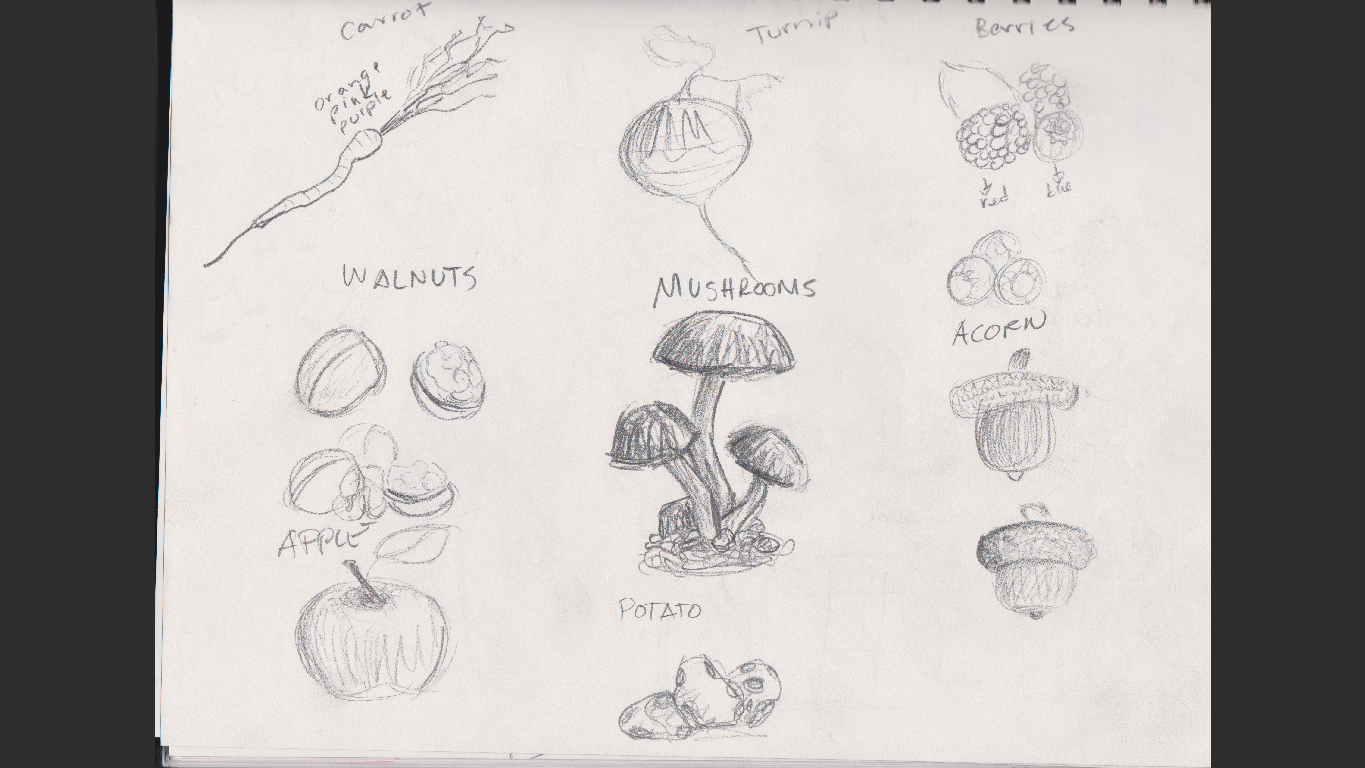 Carrot
orange
pink
purple
Turnip
Berries
red
blue
WALNUTS
MUSHROOMS
ACORN
APPLE
POTATO